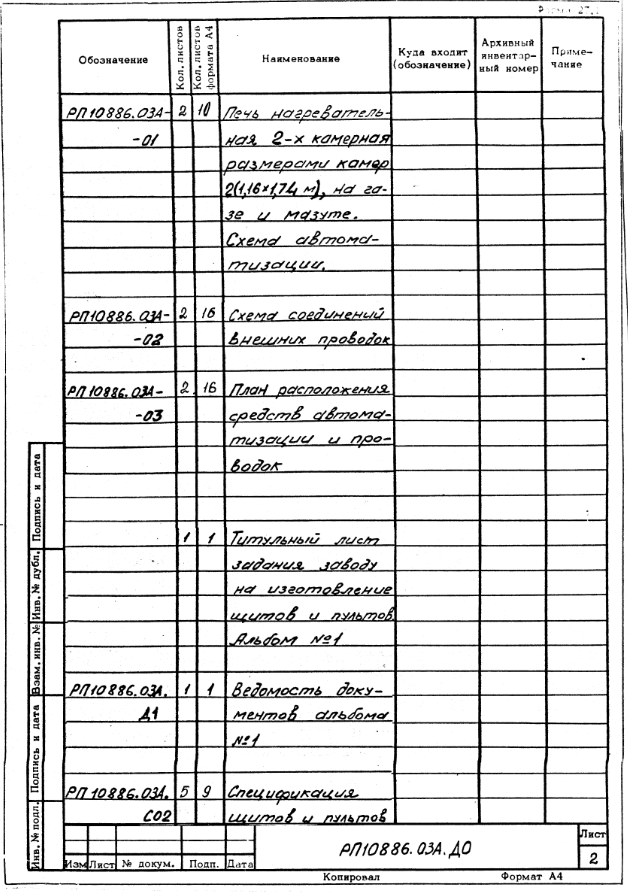 Обозначение Кол. листов Кол. листов формата А4 Наименование Куда входит (обозначение) Архивный инвентарный номер Приме-чание
РП10886.03А- 2 10 Печь нагреватель-
-01 ная 2-х камерная
размерами камер
2(1,16×1,74 м), на га-
зе и мазуте.
Схема автома-
тизации.
РП10886.03А- 2 16 Схема соединений
-02 внешних проводок
РП10886.03А- 2 16 План расположения
-03 средств автома-
тизации и про-
водок
1 1 Титульный лист
задания заводу
на изготовление
щитов и пультов
Альбом №1
РП10886.03А. 1 1 Ведомость доку-
Д1 ментов альбома
№1
РП10886.03А. 5 9 Спецификация
СО2 щитов и пультов
Инв. № подл. Подпись и дата Взам. инв. № Инв. № дубл. Подпись и дата
РП10886.03А.ДО
Лист
2
Изм Лист № докум. Подп. Дата
Копировал Формат А4